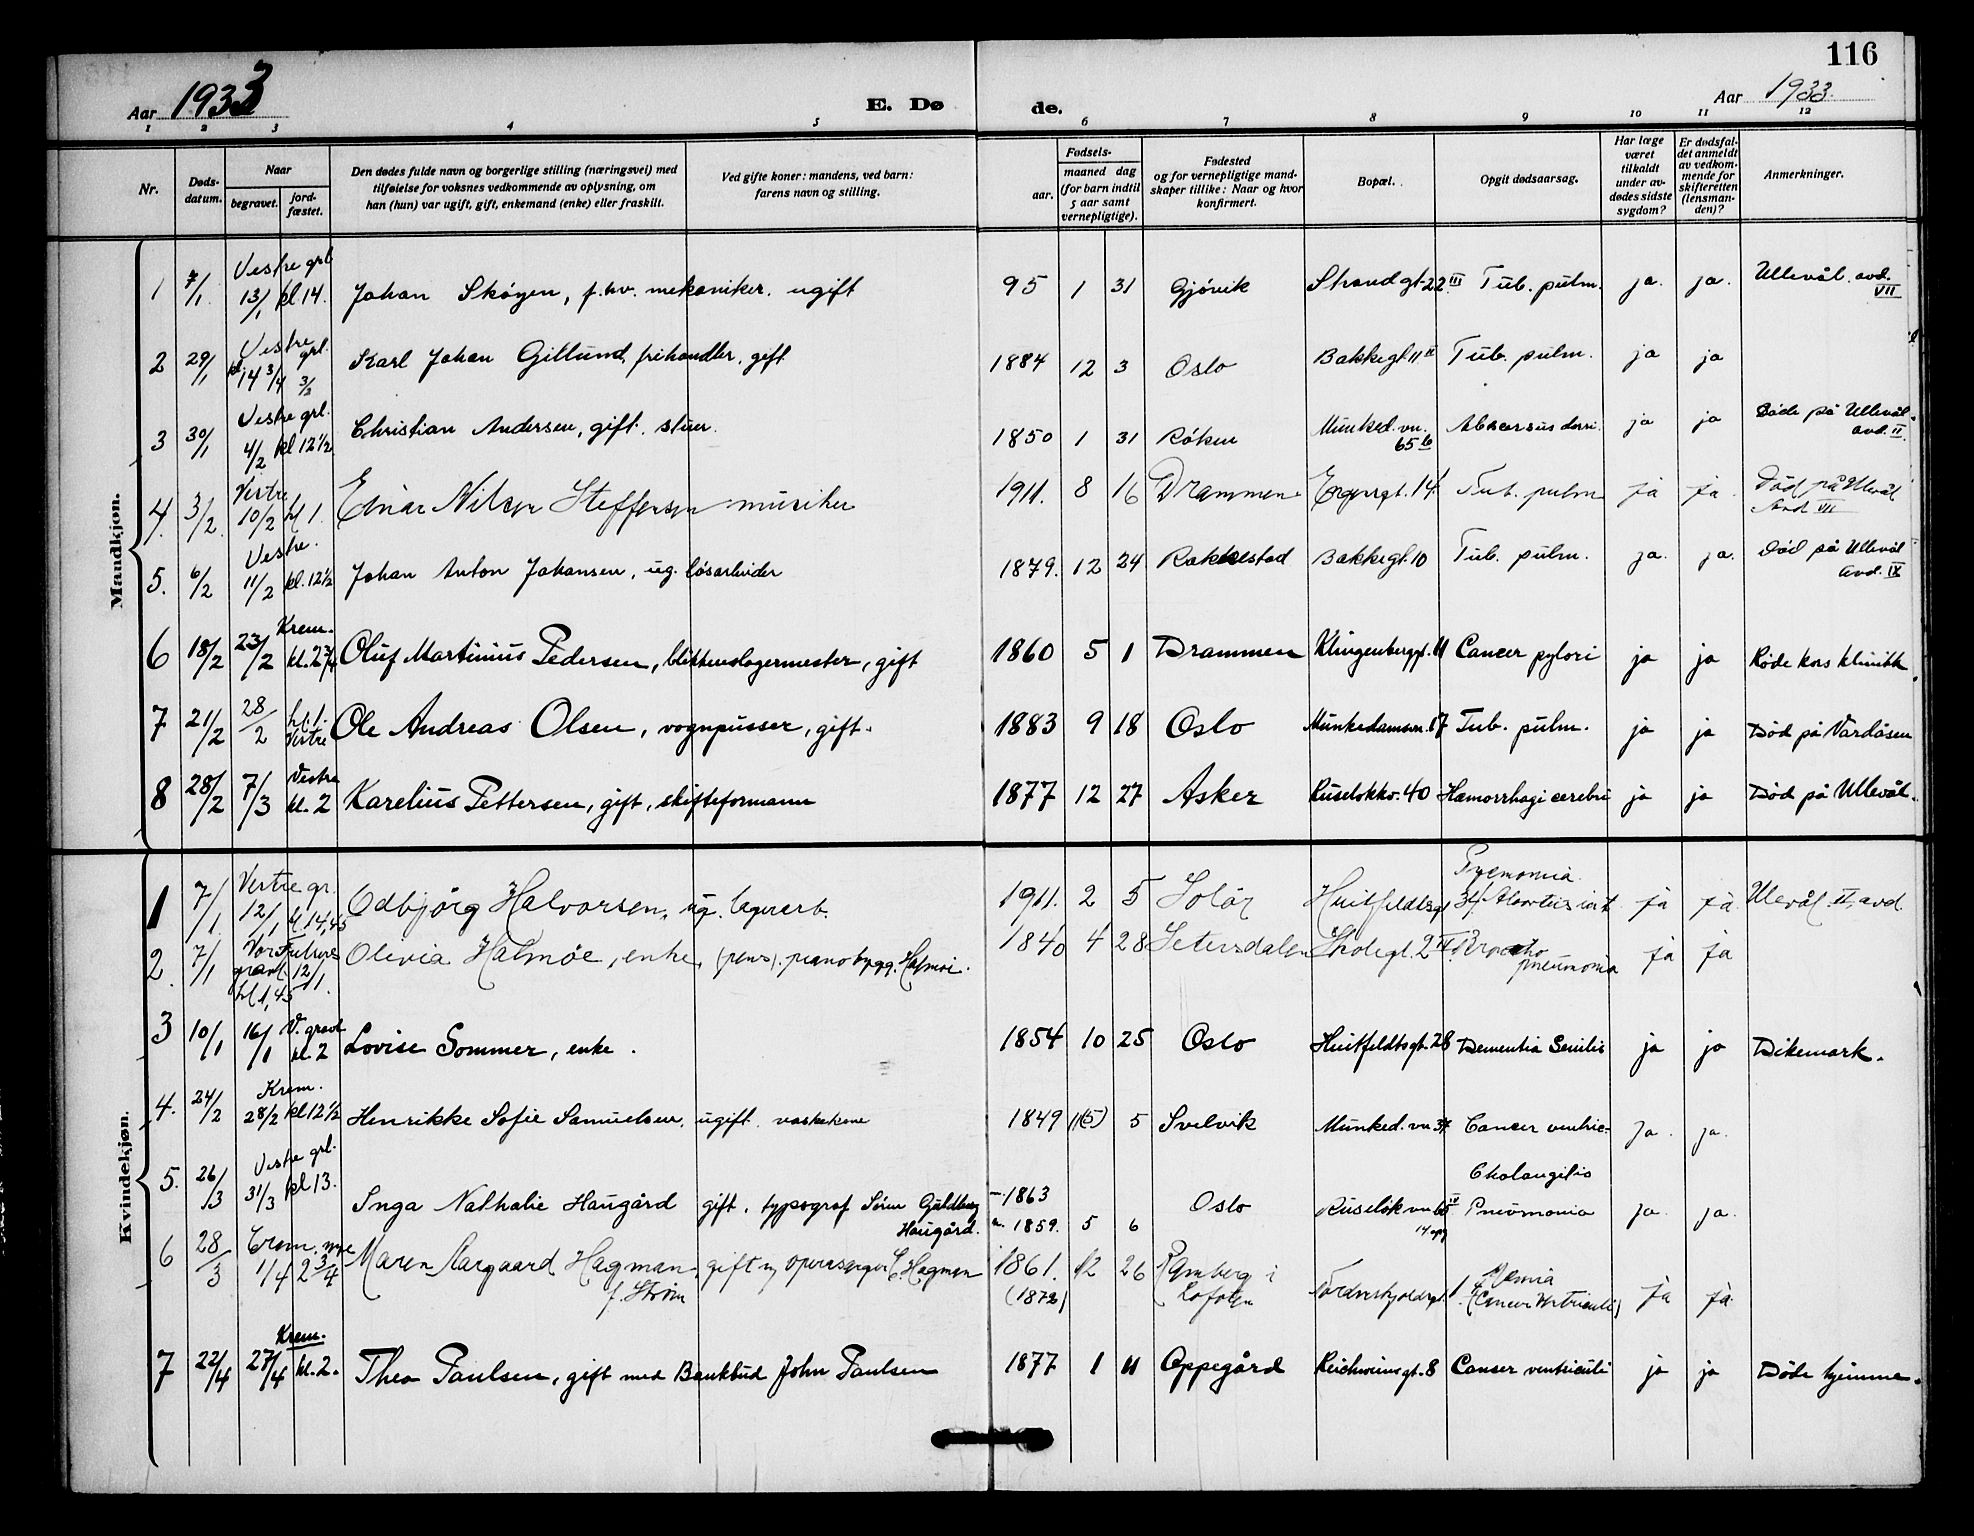 116
Aar 1933 E. Dø de. Aar 1933.
1 2 3 4 5 6 7 8 9 10 11 12
Nr.
Døds-
datum.
Naar
begravet.
jord-
fæstet.
Den dødes fulde navn og borgerlige stilling (næringsvei) med
tilføielse for voksnes vedkommende av oplysning, om
han (hun) var ugift, gift, enkemand (enke) eller fraskilt.
Ved gifte koner: mandens, ved barn:
farens navn og stilling.
Fødsels-
aar.
maaned dag
(for barn indtil
5 aar samt
vernepligtige).
Fødested
og for vernepligtige mand-
skaper tillike: Naar og hvor
konfirmert.
Bopæl.
Opgit dødsaarsag.
Har læge
været
tilkaldt
under av-
dødes sidste
sygdom?
Er dødsfal-
det anmeldt
av vedkom-
mende for
skifteretten
(lensman-
den)?
Anmerkninger.
Mandkjøn.
Vestre grl
1 7/1 13/1 kl. 14. Johan Skøyen, f.hv. mekaniker. ugift 95 1 31 Gjøvik Strandgt. 22 III Tub. pulm. ja. ja. Ullevål. avd. VII
Vestre grl.
2 29/1 kl. 14 3/4 3/2 Karl Johan Gillund, frihandler, gift 1884 12 3 Oslo Bakkegt 11 II Tub. pulm. ja ja
Vestre grl.
3 30/1 4/2 kl 12 1/2 Christian Andersen, gift. stuer. 1850 1 31 Røken Munked.vn. 65 b ja ja Døde på Ullevål avd. II.
Vestre
4. 3/2 10/2 kl 1. Einar Nilsen Steffensen musiker 1911. 8 16 Drammen 14 Tub. pulm ja ja Død på Ullevål Avd VII
Vestre.
5. 6/2 11/2 kl. 12 1/2 Johan Anton Johansen, ug. løsarbeider 1879. 12 24 Rakkestad Bakkegt. 10 Tub. pulm. ja. ja. Død på Ullevål avd. IX
Krem.
6 18/2 23/2 kl. 2 3/4 Oluf Martinius Pedersen, blikkenslagermester, gift 1860 5 1 Drammen Klingenberggt. 4 Cancer pylori ja ja Røde kors klinikk
7 21/2 28/2 kl. 1. Vestre Ole Andreas Olsen, vognpusser, gift. 1883 9 18 Oslo Munkedamsvn. 17 Tub. pulm. ja ja Død på Vardåsen
Vestre
8 28/2 7/3 kl. 2 Karelius Pettersen, gift, skifteformann 1877 12 27 Asker Ruseløkkv. 40 Hæmorrhagi cerebri ja ja Død på Ullevål.
Kvindekjøn.
Vestre gr.
1 7/1 12/1 kl 14,45 Odbjørg Halvorsen, ug. lagerarb. 1911. 2 5 Solør Huitfeldtsgt 34 Pyemonia Abortus ja ja Ulevål II avd.
2. 7/1 Vor Frelsers gravl. 12/1. kl 1,45 Olivia Halmøe, enke, (pens). pianobygg. Halmøe. 1840 4 28 Setersdalen 2 Broncho pneumonia ja ja
3 10/1 16/1 V. gravl kl. 2 Lovise Sommer, enke. 1854 10 25 Oslo Huitfeldtsgt. 28 Dementia Senilis ja ja Dikemark.
Krem.
4. 24/2 28/2 kl 12 1/2 Henrikke Sofie Samuelsen, ugift. vaskekone 1849 11(5) 5 Svelvik Munked. vn 37 Cancer ventric. ja. ja.
Vestre grl.
5. 26/3 31/3 kl 13. Inga Nathalie Haugård gift. typograf Søren Guldberg Haugård. 1863 1859. 5 6 Oslo Ruseløkvn 65 IV Cholangitis Pneumonia ja. ja.
6 28/3 Crem. nye 1/4 2 3/4 Maren Aargaard Hagman, f. Strøm gift m operasanger C. Hagman 1861. (1872) 12 26 Ramberg i Lofoten Tordenskjoldsgt. 1 (Cancer Ventriculi) ja ja
Krem.
7 22/4 27/4 kl. 2. Thea Paulsen, gift med Bankbud John Paulsen 1877 1 11 Oppegård Reichweinsgt. 8 Canser ventriculi ja ja Døde hjemme.